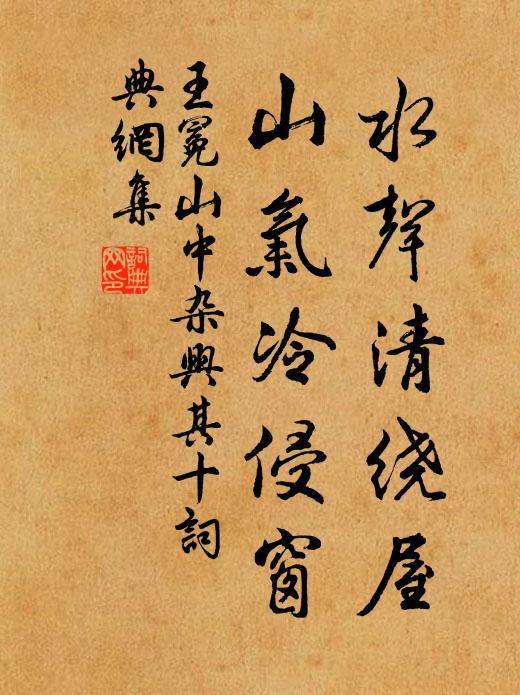 水聲清绕屋
山氣冷侵窗
王冕山中杂興其十詞
典網集
詞典
网印